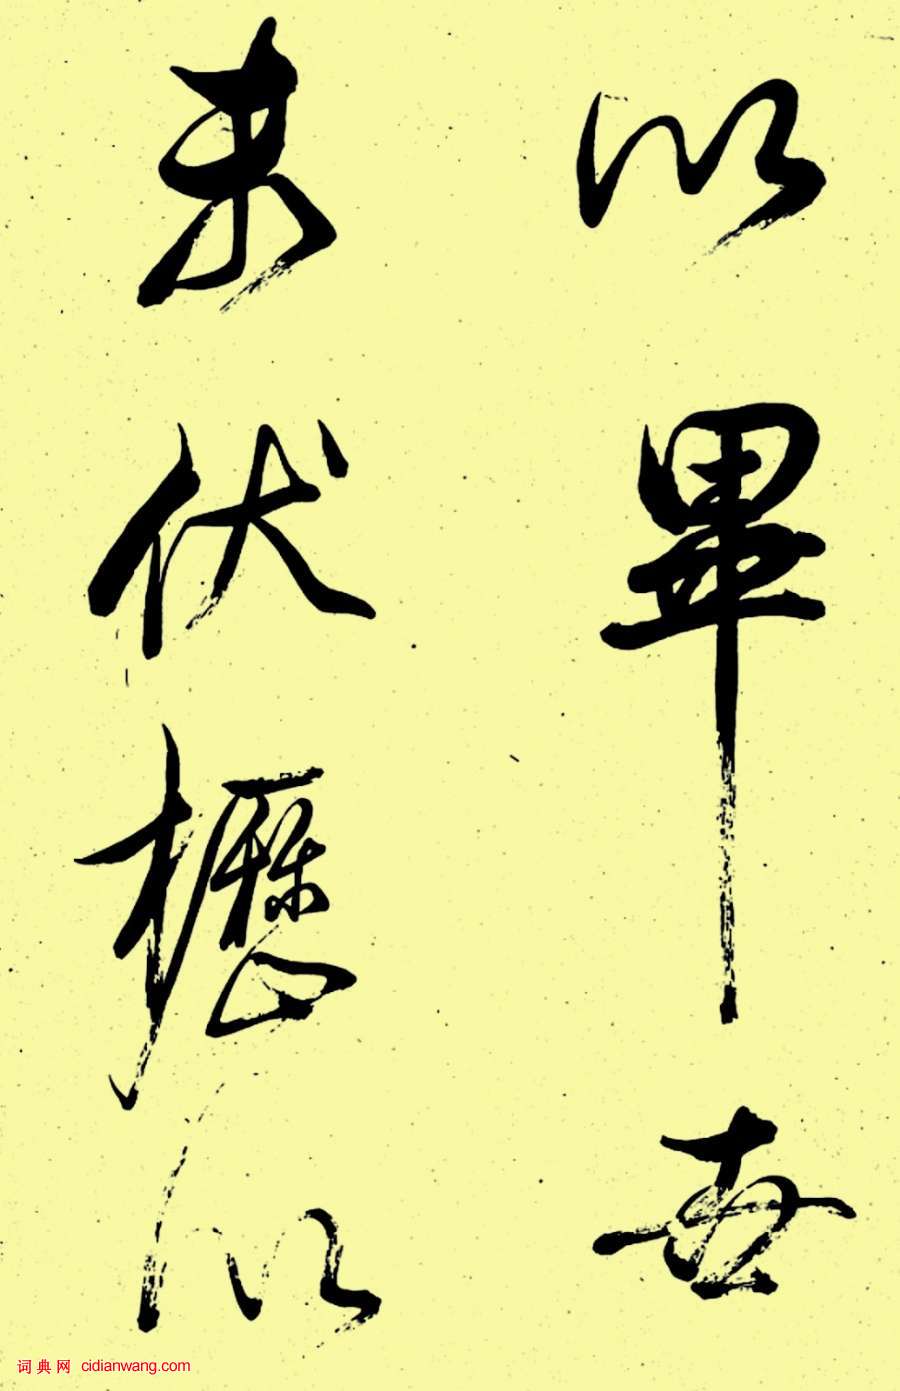 以畢世
未伏櫪以
词典网 cidianwang.com